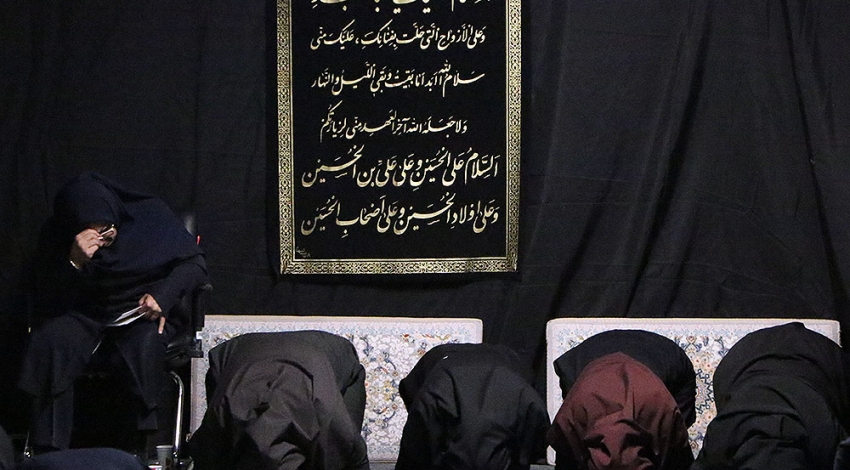 وَعَلَى الأَرْوَاحِ الَّتِي حَلَّتْ بِفِنَائِكَ، عَلَيْكَ مِنِّي
سَلَامُ اللهِ أَبَدًا مَا بَقِيتُ وَبَقِيَ اللَّيْلُ وَالنَّهَارُ
وَلَا جَعَلَهُ اللهُ آخِرَ الْعَهْدِ مِنِّي لِزِيَارَتِكُمْ
اَلسَّلَامُ عَلَى الْحُسَيْنِ وَعَلَى عَلِيِّ بْنِ الْحُسَيْنِ
وَعَلَى أَوْلَادِ الْحُسَيْنِ وَعَلَى أَصْحَابِ الْحُسَيْنِ